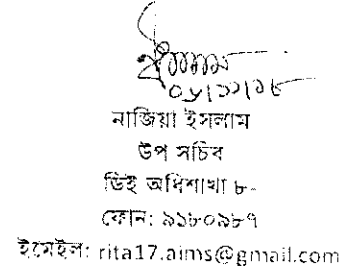 ০৮/১১/১৮
নাজিয়া ইসলাম
উপ সচিব
ডিই অধিশাখা ৮-
ফোন: ৯১৮০৯৮৭
ইমেইল: rita17.aims@gmail.com